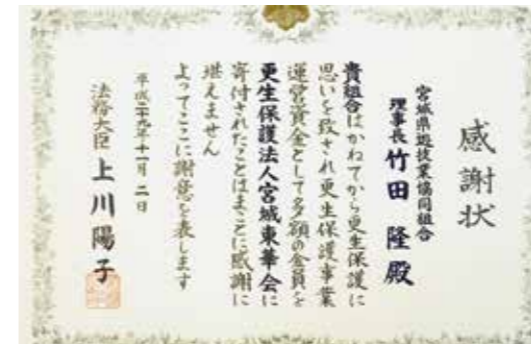 感謝状
宮城県遊技業協同組合
理事長 竹田 隆 殿
貴組合はかねてから更生保護に
思いを致され更生保護事業
運営資金として多額の金員を
更生保護法人宮城東華会に
寄付されたことはまことに感謝に
堪えません
よってここに謝意を表します
平成二十九年十一月 二日
法務大臣 上川陽子